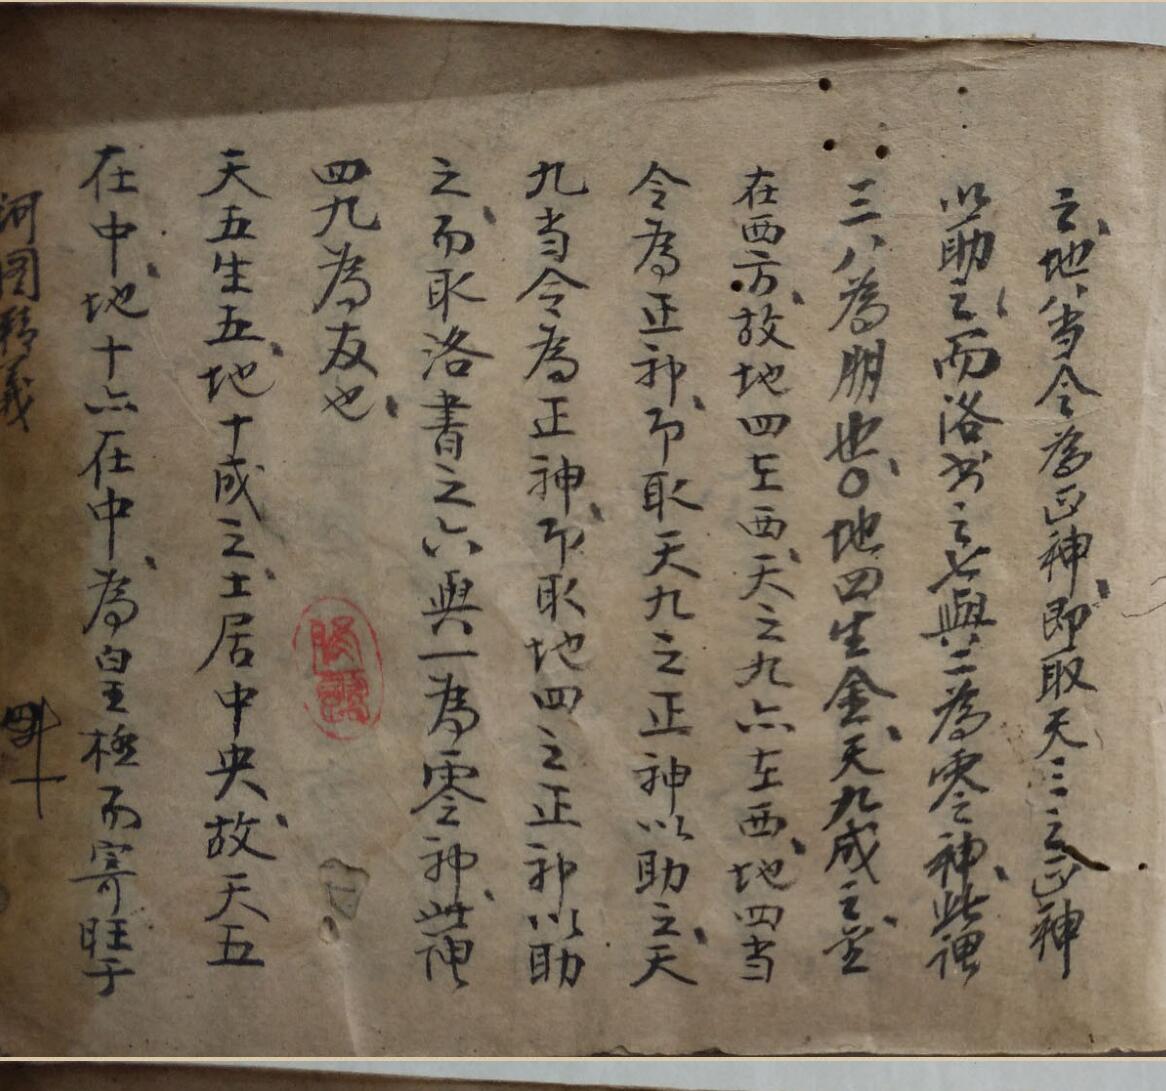 之、地八当令為正神、即取天三之正神
以助之、而洛书之七與二為零神、此谓
三八為朋也、○地四生金、天九成之、金
在西方、故地四在西、天之九亦在西、地四当
令為正神、即取天九之正神以助之、天
九当令為正神、即取地四之正神以助
之、而取洛書之六與一為零神、此谓
四九為友也、
天五生五、地十成之、土居中央、故天五
在中、地十亦在中、為皇極而寄旺于
河图精義